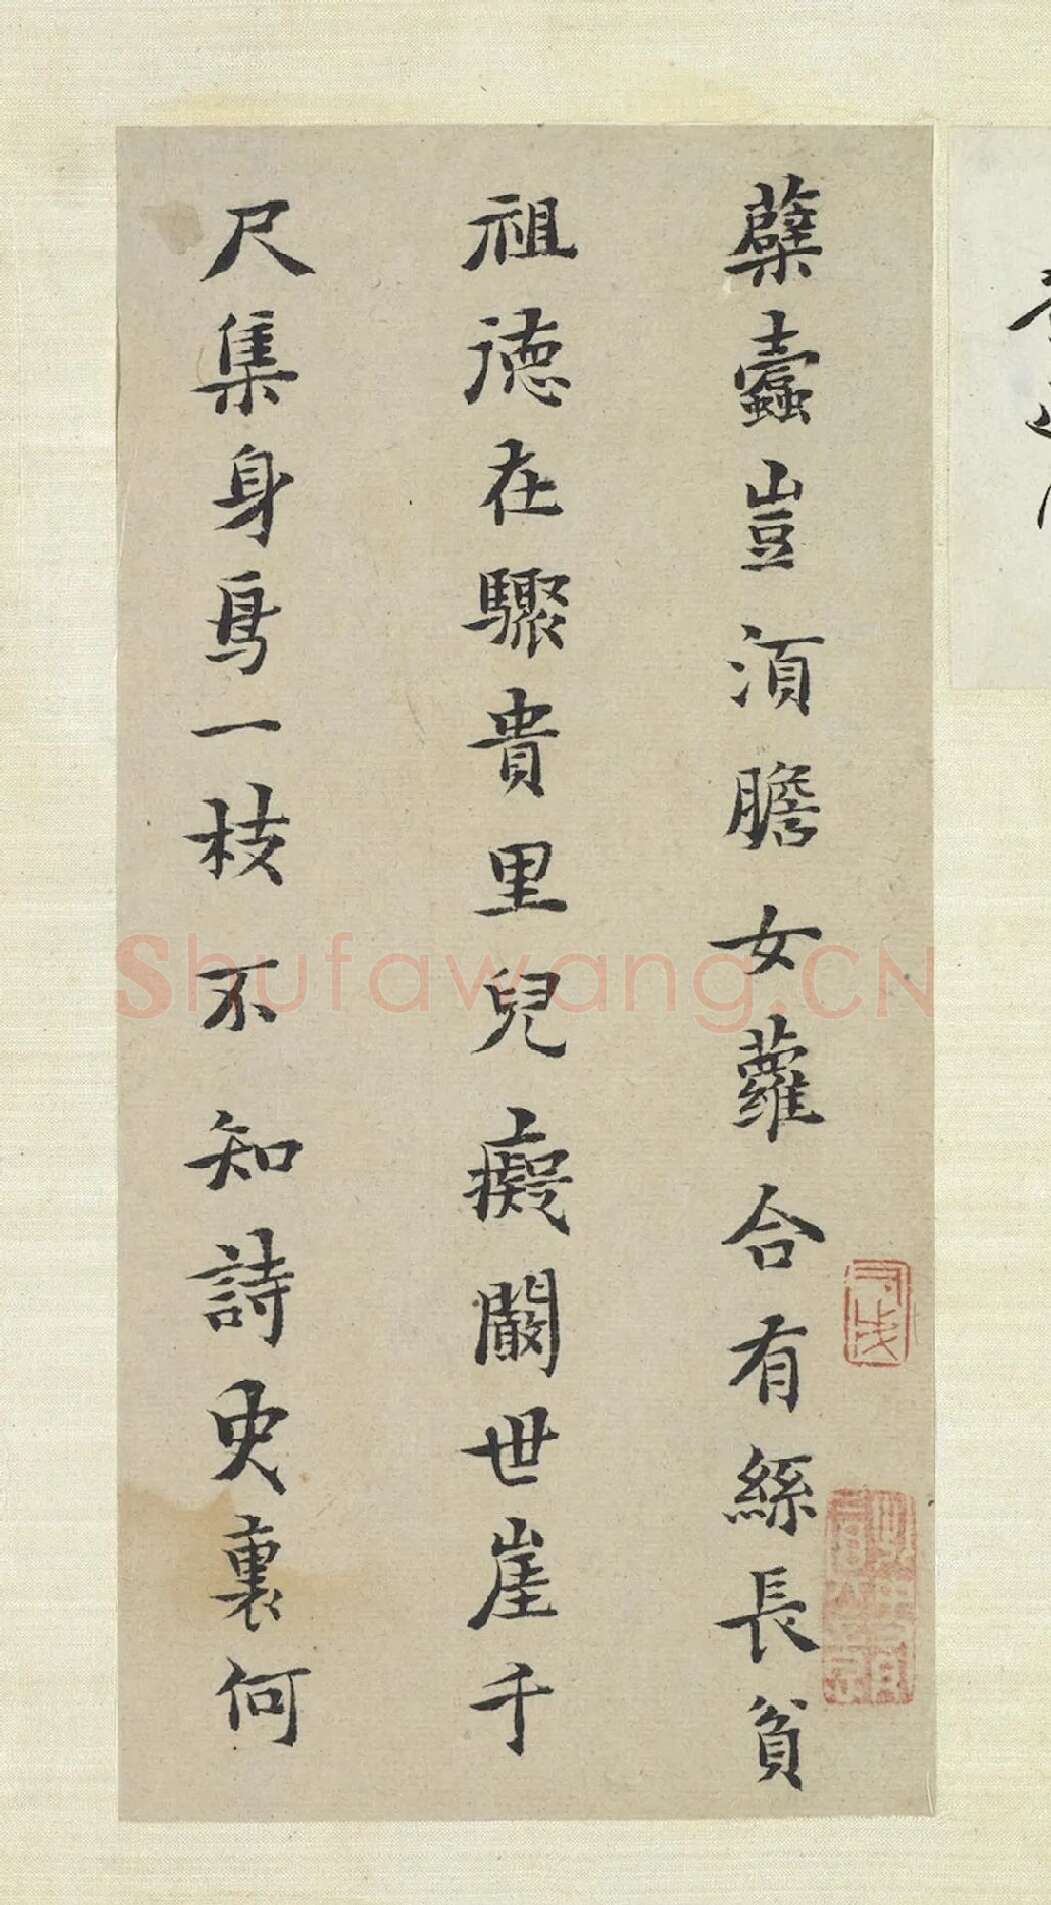 蘗蠹豈須膽女蘿合有絲長貧
祖德在驟貴里兒癡闞世崖千
尺集身鳥一枝不知詩史裏何
Shufawang.CN